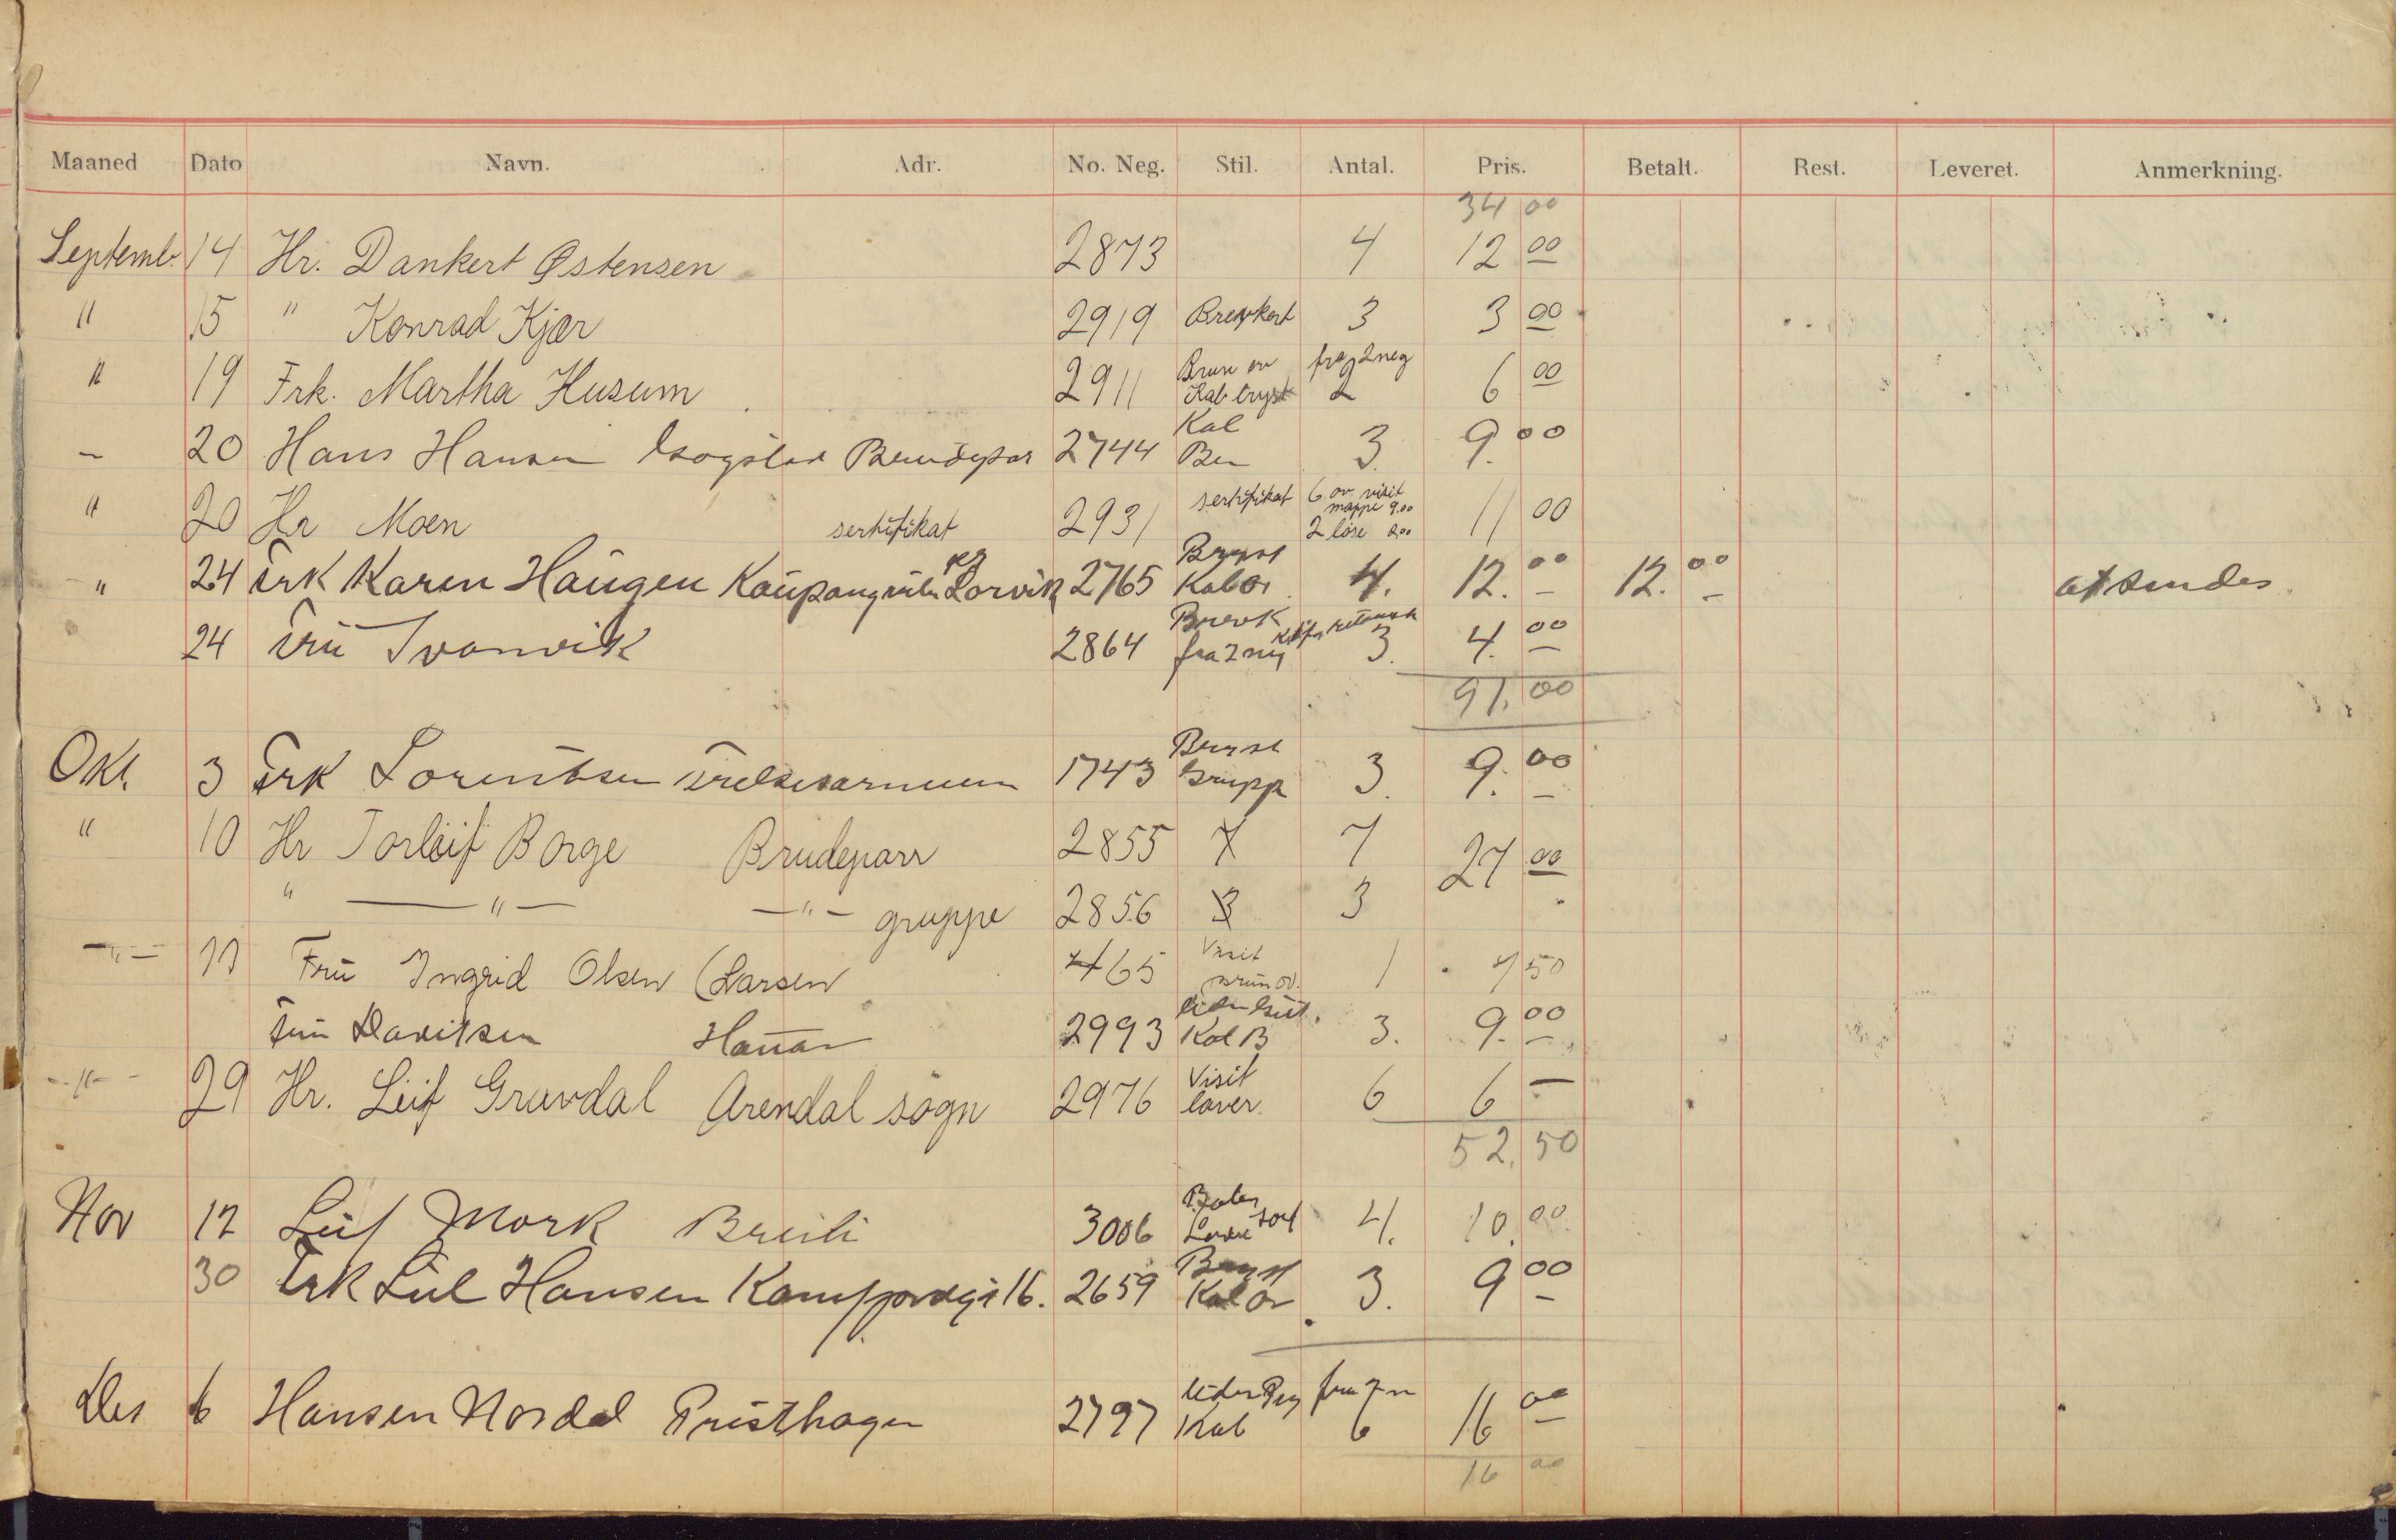 Maaned Dato Navn. Adr. No. Neg. Stil. Antal. Pris. Betalt. Rest. Leveret. Anmerkning.
34 00
Septemb. 14 Hr. Dankert Østensen 2873 4 12 00
" 15 " Konrad Kjær 2919 3 3 00
" 19 Frk. Martha Husum 2911 Brun ov Kab bryst fra 2 neg 2 6 00
- 20 Hans Hansen 2744 Kab 3. 9. 00
" 20 Hr Moen sertifikat 2931 sertifikat 6 ov. visit mappe 9.00 2 løse 2.00 11 00
" 24 Frk Karen Haugen Larvik 2765 Bryst Kab ov. 4. 12. 00 12. 00 at sendes
24 Fru Svanvik 2864 fra 2 neg 3. 4. 00
91. 00
Okt. 3 Frk Lorentsen Frelsesarmeen 1743 Bryst Grupp 3. 9. 00
" 10 Hr Torleif Borge Brudeparr 2855 7 27 00
" — " — — " — gruppe 2856 3
— " — 11 Fru Ingrid Olsen (Larsen 465 Visit brun ov. 1 4 50
Fru Davitsen 2993 Kab B 3. 9. 00
— " — 29 Hr. Leif Gravdal Arendal sogn 2976 Visit 6 6 —
52. 50
Nov 12 Leif Mork 3006 4. 10. 00
30 Frk Lul Hansen 16. 2659 Bryst Kab ov 3. 9 00
Des 6 Hansen Nordal Presthagen 2797 Kab 6 16 00
16 00